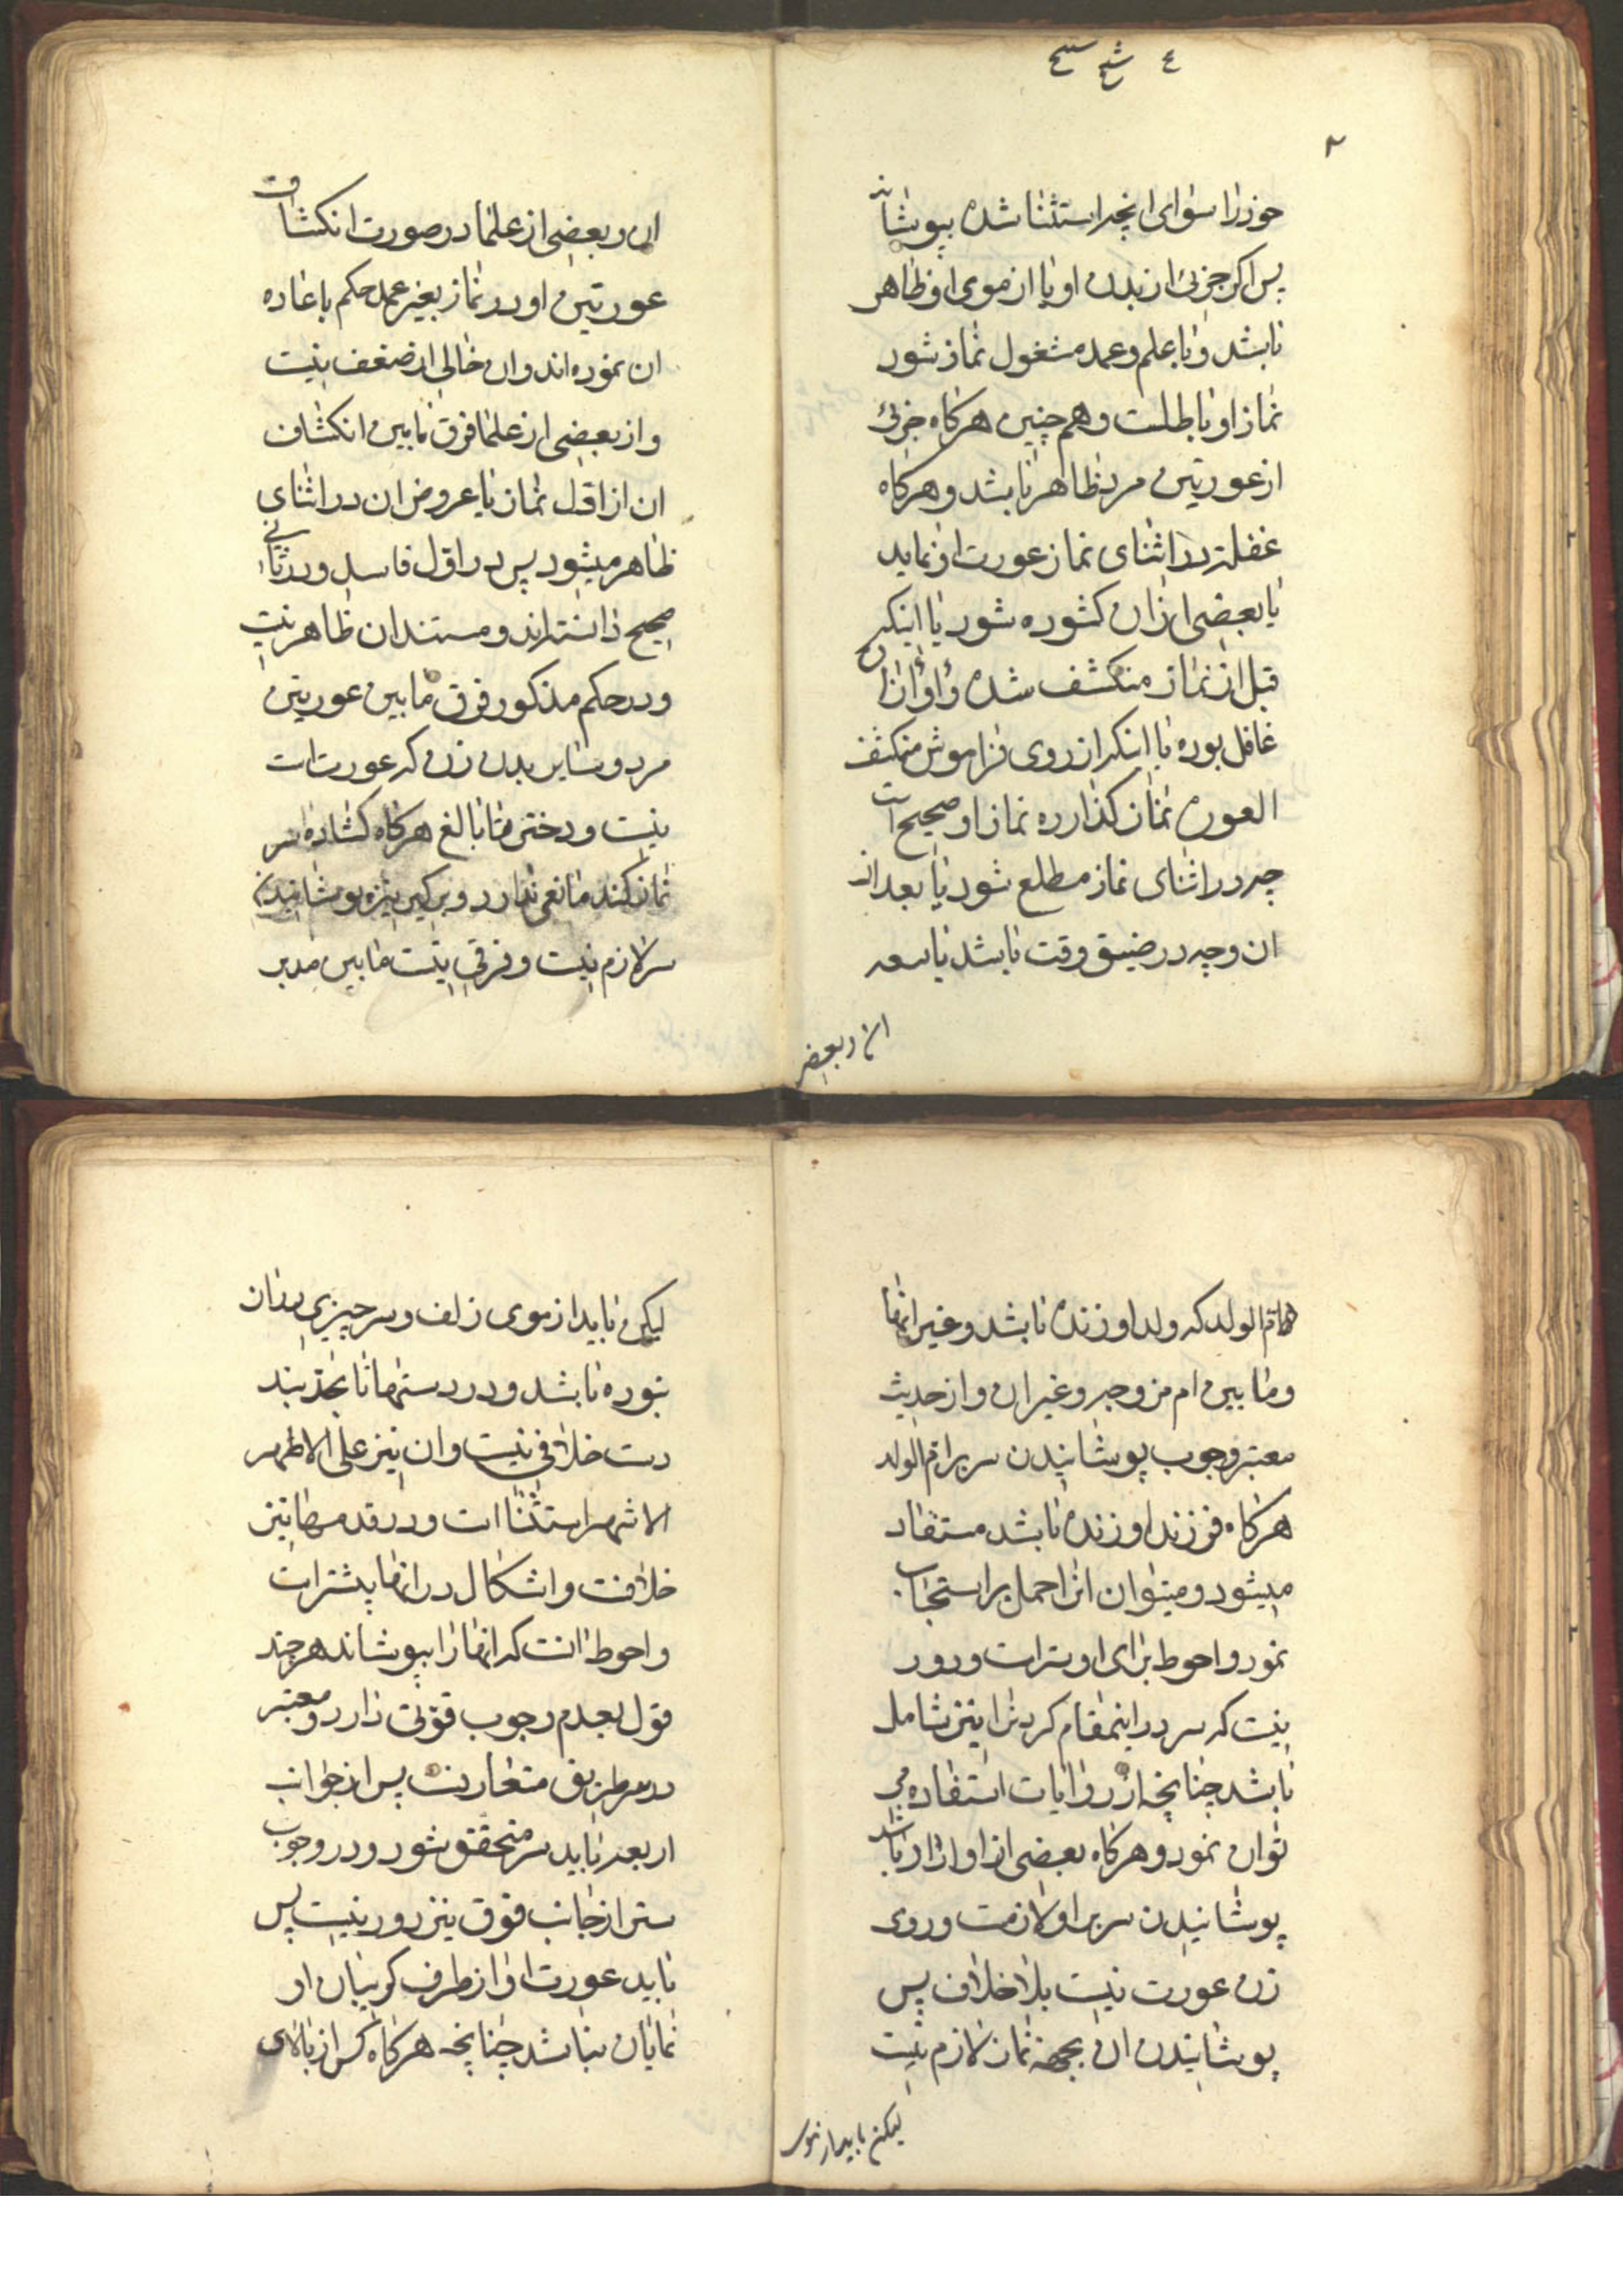 ع شح سح
۲
خود را سوای آنچه استثنا شده بپوشاند
پس اگر جزئی از بدن او یا از موی او ظاهر
باشد و با علم و عمد مشغول نماز شود
نماز او باطلست و هم چنین هرگاه جزئی
از عورتین مرد ظاهر باشد و هرگاه
غفلة در اثنای نماز عورت او نماید
یا بعضی از ان گشوده شود یا اینکه
قبل از نماز منکشف شده و او از ان
غافل بوده یا اینکه از روی فراموش منکشف
العورة نماز گذارده نماز او صحیح است
چه در اثنای نماز مطلع شود یا بعد از
ان و چه در ضیق وقت باشد یا سعه
ان و بعضی
ان و بعضی از علما در صورت انکشاف
عورتین او در نماز بغیر عمد حکم باعاده
ان نموده اند و ان خالی از ضعف نیست
و از بعضی از علما فرق ما بین انکشاف
ان از اول نماز یا عروض ان در اثنای
ظاهر میشود پس در اول فاسد و در ثانی
صحیح دانسته اند و مستند ان ظاهر نیست
و در حکم مذکور فرق ما بین عورتین
مرد و سایر بدن زن که عورت است
نیست و دختر نا بالغ هرگاه گشاده سر
نماز کند مانعی ندارد و بر کنیز نیز پوشانیدن
سر لازم نیست و فرقی نیست ما بین مدبره
و ام الولد که ولد او زنده باشد و غیر انها
و ما بین ام مزوجه و غیر ان و از حدیث
معتبر وجوب پوشانیدن سر بر ام الولد
هرگاه فرزند او زنده باشد مستفاد
میشود و میتوان انرا حمل بر استحباب
نمود و احوط برای او ستر است و دور
نیست که سر در اینمقام گردن را نیز شامل
باشد چنانچه از روایات استفاده می
توان نمود و هرگاه بعضی از او ازاد باشد
پوشانیدن سر بر او لازمست و روی
زن عورت نیست بلا خلاف پس
پوشانیدن ان بجهة نماز لازم نیست
لیکن باید از موی
لیکن باید از موی زلف و سر چیزی بر ان
نبوده باشد و در دستها تا بچند بند
دست خلافی نیست و ان نیز علی الاظهر
الاشهر استثنا است و در قدمها نیز
خلافست و اشکال در انها بیشتر است
و احوط انست که انها را بپوشاند هر چند
قول بعدم وجوب قوتی دارد و معتبر
در ستر طریق متعارفست پس از جوانب
اربعه باید ستر متحقق شود و در وجوب
ستر از جانب فوق نیز دور نیست پس
باید عورت او از طرف گریبان او
نمایان نباشد چنانچه هرگاه کس از بالای